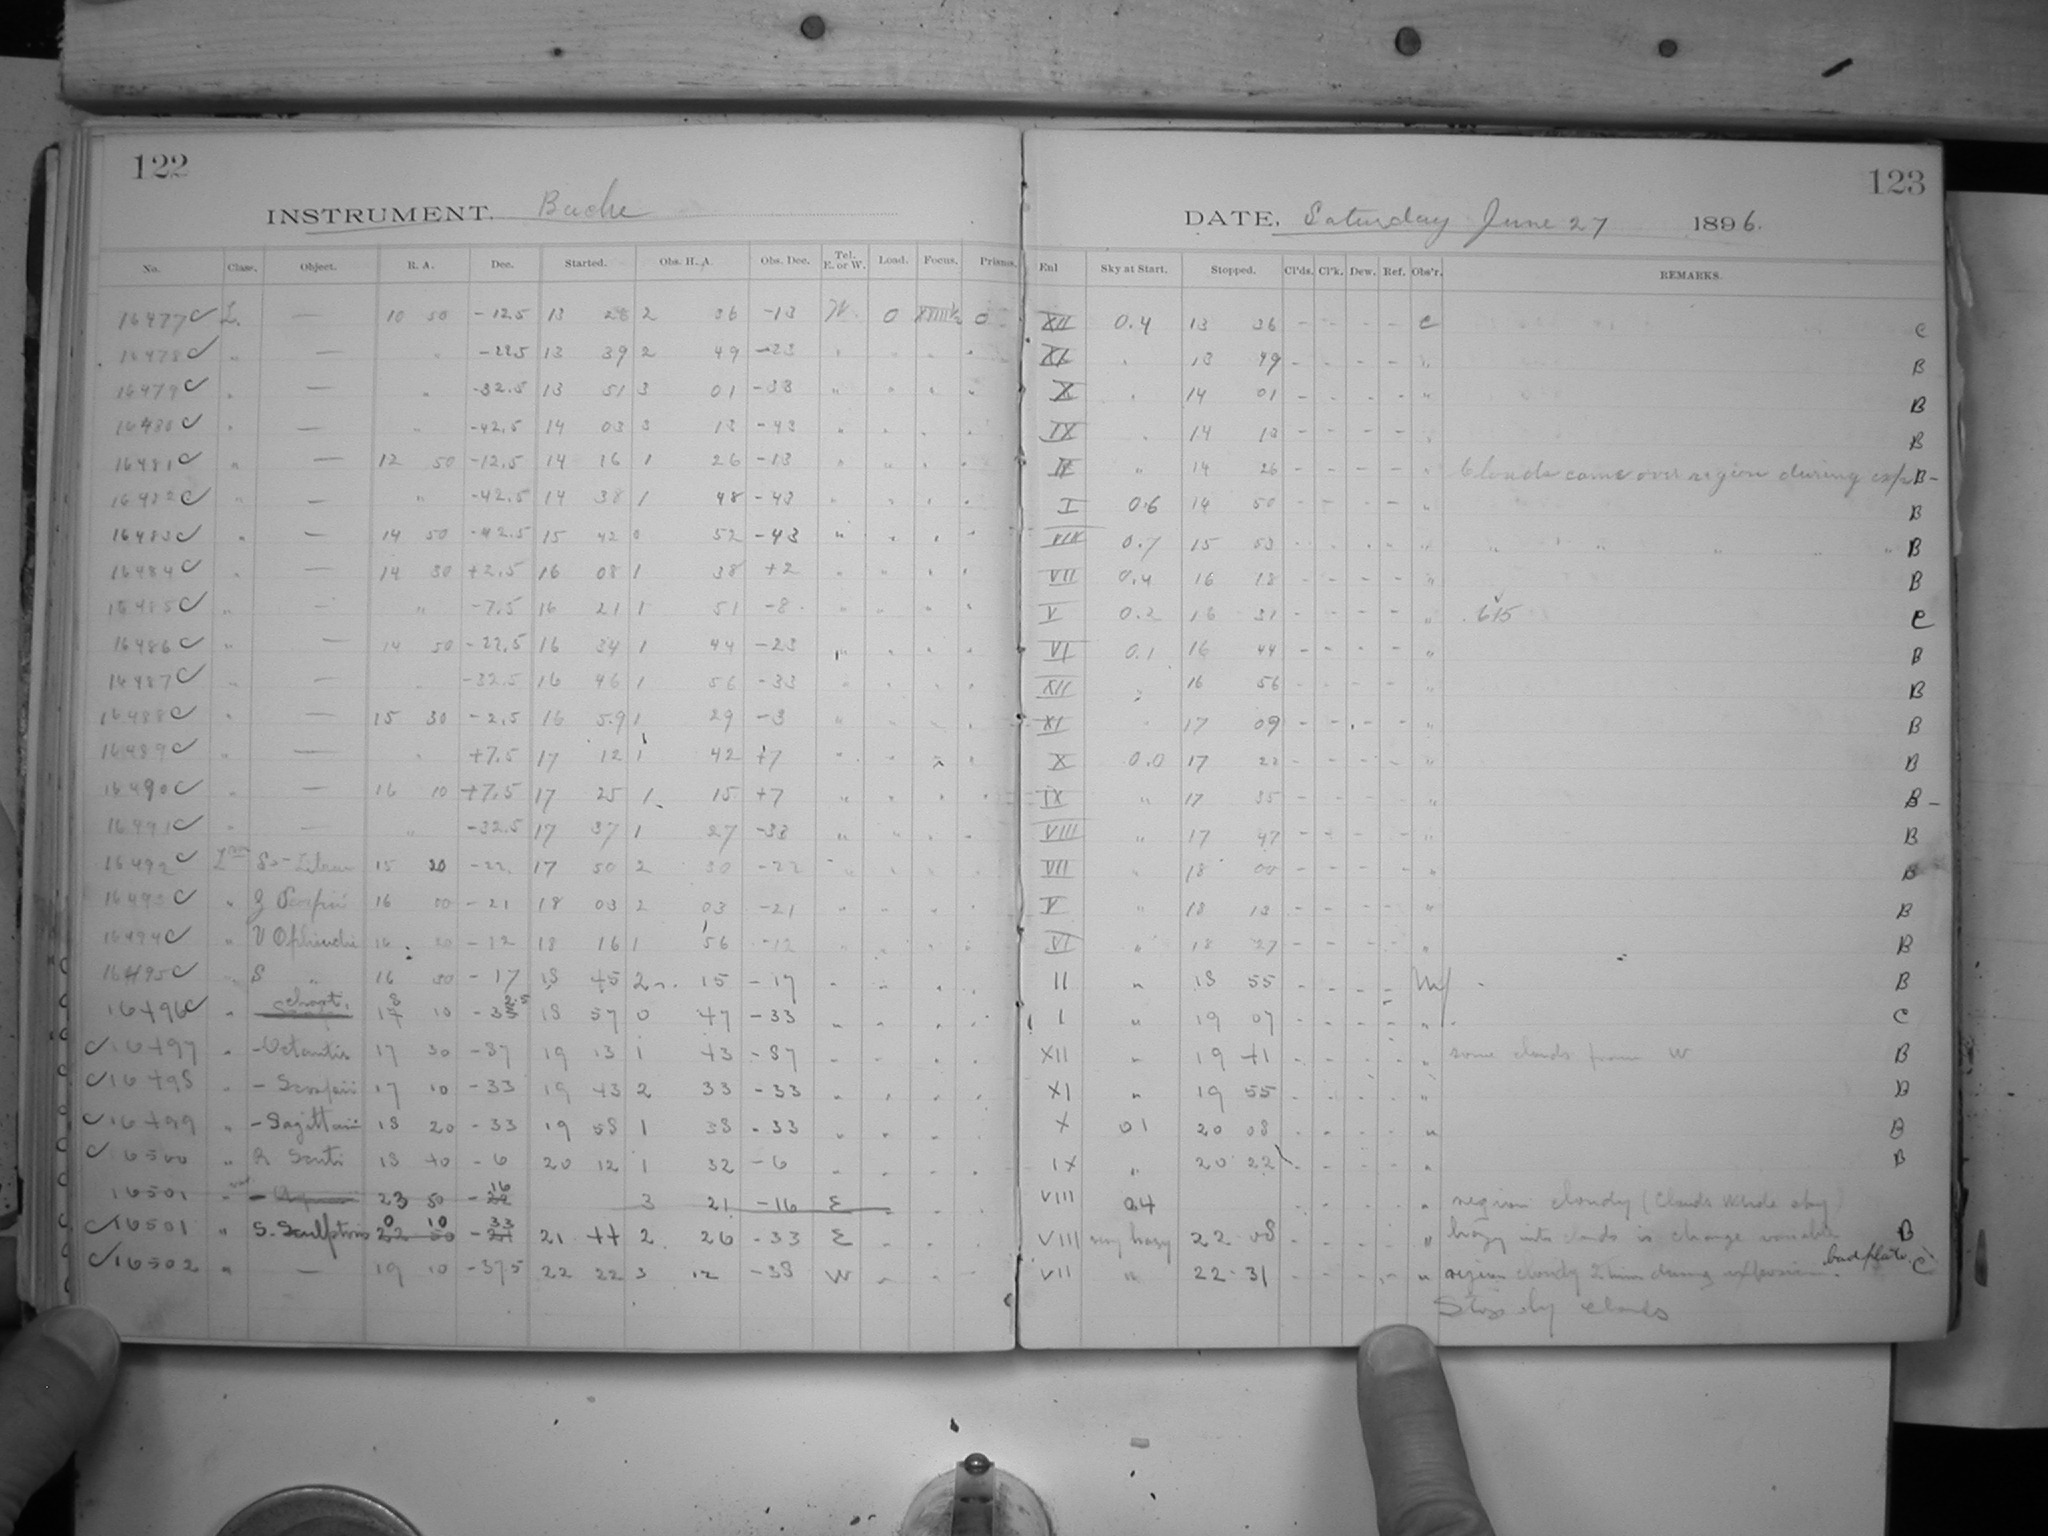 122
INSTRUMENT. Bache
No. Class. Object. R. A. Dec. Started. Obs. H. A. Obs. Dec. Tel. E. or W. Load. Focus. Prisms.
16477 L. — 10 50 -12.5 13 28 2 36 -13 W. 0 0
16478 " — " -22.5 13 39 2 49 -23
16479 " — " -32.5 13 51 3 01 -33
16480 " — " -42.5 14 03 3 13 -43
16481 " — 12 50 -12.5 14 16 1 26 -13
16482 " — " -42.5 14 38 1 48 -43
16483 " — 14 50 -42.5 15 42 0 52 -43
16484 " — 14 30 +2.5 16 08 1 38 +2
16485 " — " -7.5 16 21 1 51 -8
16486 " — 14 50 -22.5 16 34 1 44 -23
16487 " — " -32.5 16 46 1 56 -33
16488 " — 15 30 -2.5 16 59 1 29 -3
16489 " — " +7.5 17 12 1 42 +7
16490 " — 16 10 +7.5 17 25 1 15 +7
16491 " — " -32.5 17 37 1 27 -33
16492 15 20 -22 17 50 2 30 -22
16493 " 16 00 -21 18 03 2 03 -21
16494 " V Ophiuchi 16 20 -12 18 16 1 56 -12
16495 " S " 16 30 -17 18 45 2 15 -17
16496 " chart. 18 10 -32.5 18 57 0 47 -33
16497 " - Octantis 17 30 -87 19 13 1 43 -87
16498 " - Scorpii 17 10 -33 19 43 2 33 -33
16499 " - Sagittarii 18 20 -33 19 58 1 38 -33
16500 " R Scuti 18 40 -6 20 12 1 32 -6
16501 " 23 50 -16 3 21 -16 E
16501 " S. Sculptoris 0 10 -33 21 44 2 26 -33 E
16502 " — 19 10 -37.5 22 22 3 12 -38 W
123
DATE, Saturday June 27 1896.
Enl Sky at Start. Stopped. Cl'ds. Cl'k. Dew. Ref. Obs'r. REMARKS.
XII 0.4 13 36 - - - - C C
XI " 13 49 - - - - " B
X " 14 01 - - - - " B
IX " 14 13 - - - - " B
" 14 26 - - - - " Clouds came over region during exp B-
I 0.6 14 50 - - - - " B
VIII 0.7 15 53 - - - - " " " " " " B
VII 0.4 16 18 - - - - " B
V 0.2 16 31 - - - - " C
VI 0.1 16 44 - - - - " B
XII " 16 56 - - - - " B
XI 17 09 - - - - " B
X 0.0 17 22 - - - - " B
IX " 17 35 - - - - " B -
VIII " 17 47 - - - - " B
VII " 18 00 - - - - " B
V " 18 13 - - - - " B
VI " 18 27 - - - - " B
II " 18 55 - - - - B
I " 19 07 - - - - " C
XII " 19 41 - - - - " some clouds from W B
XI " 19 55 - - - - " B
X 01 20 08 - - - - " B
IX " 20 22 - - - - " B
VIII 04 " region cloudy (Clouds whole sky)
VIII very hazy 22 08 - - - - " hazy into clouds is change variable B
VII " 22 31 - - - - " region cloudy 2 min during exposure. bad plate. C
Stop by clouds